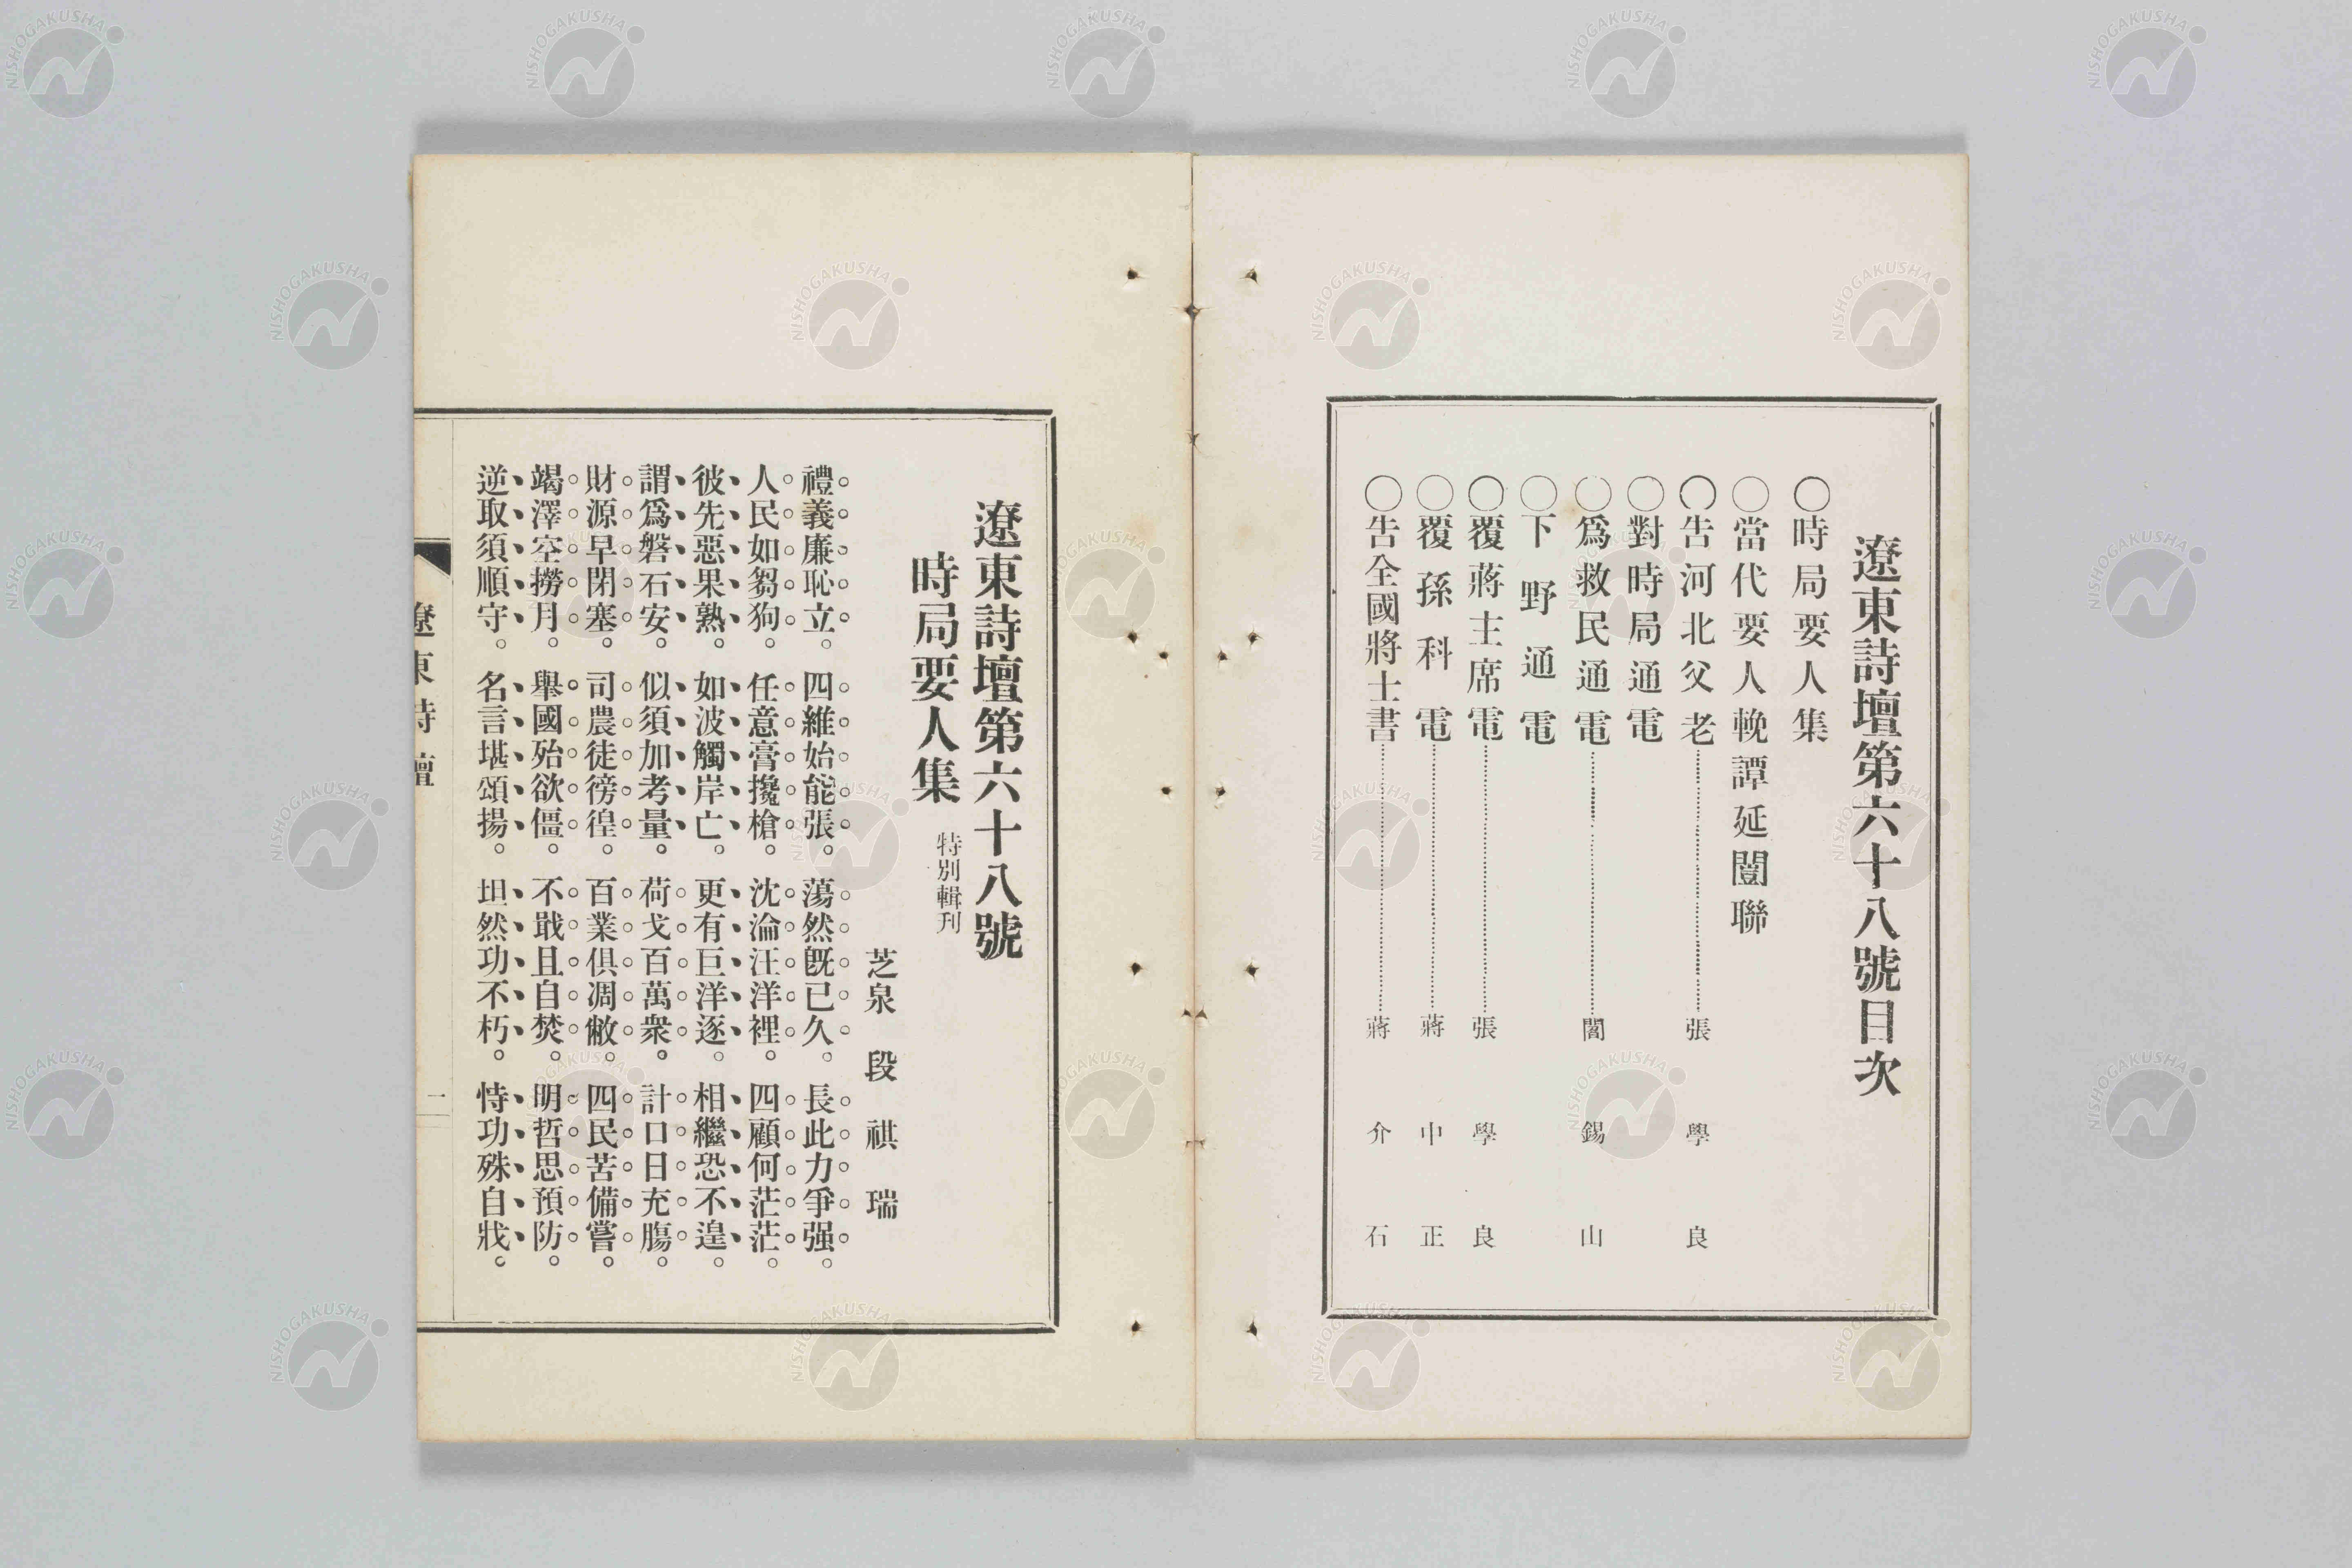 遼東詩壇第六十八號目次
〇時局要人集
〇當代要人輓譚延闓聯
〇告河北父老………張學良
〇對時局通電
〇爲救民通電………閻錫山
〇下野通電
〇覆蔣主席電………張學良
〇覆孫科電………蔣中正
〇告全國將士書………蔣介石
遼東詩壇第六十八號
時局要人集 特別輯刊
芝泉 段祺瑞
禮義廉恥立。四維始能張。蕩然旣已久。長此力爭强。
人民如芻狗。任意膏攙槍。沈淪汪洋裡。四顧何茫茫。
彼先惡果熟。如波觸岸亡。更有巨洋逐。相繼恐不遑。
謂爲磐石安。似須加考量。荷戈百萬衆。計口日充膓。
財源早閉塞。司農徒徬徨。百業俱凋敝。四民苦備嘗。
竭澤空撈月。舉國殆欲僵。不戢且自焚。明哲思預防。
逆取須順守。名言堪頌揚。坦然功不朽。恃功殊自戕。
遼東詩壇
一
NISHOGAKUSHA